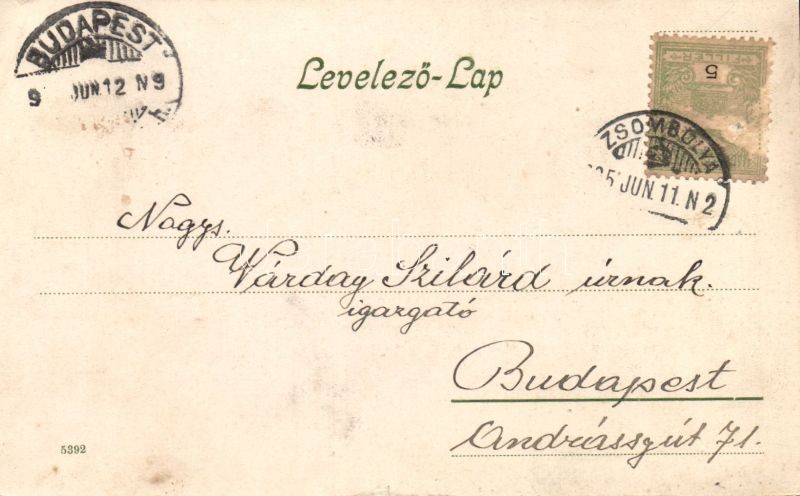 BUDAPEST
9 JUN.12 N9
Levelező-Lap
5
ZSOMBOLYA
5 JUN.11.N2
Nagys.
Várday Szilárd úrnak.
igazgató
Budapest
Andrássyút 71.
5392